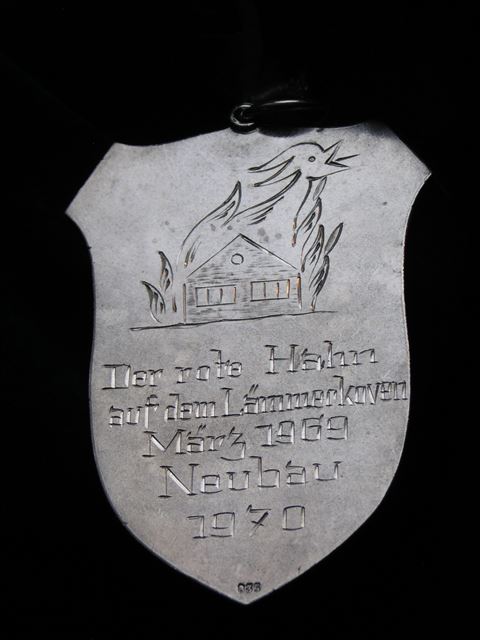 Der rote Hahn
auf dem Lämmerkoven
März 1969
Neubau
1970
835